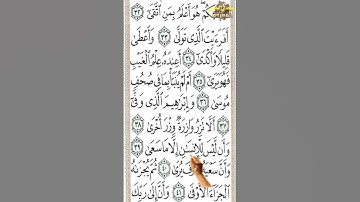 كُمْ هُوَ أَعْلَمُ بِمَنِ ٱتَّقَىٰٓ ٣٢
أَفَرَءَيْتَ ٱلَّذِى تَوَلَّىٰ ٣٣ وَأَعْطَىٰ
قَلِيلًا وَأَكْدَىٰٓ ٣٤ أَعِندَهُۥ عِلْمُ ٱلْغَيْبِ
فَهُوَ يَرَىٰٓ ٣٥ أَمْ لَمْ يُنَبَّأْ بِمَا فِى صُحُفِ
مُوسَىٰ ٣٦ وَإِبْرَٰهِيمَ ٱلَّذِى وَفَّىٰٓ
٣٧ أَلَّا تَزِرُ وَازِرَةٌ وِزْرَ أُخْرَىٰ ٣٨
وَأَن لَّيْسَ لِلْإِنسَٰنِ إِلَّا مَا سَعَىٰ ٣٩
وَأَنَّ سَعْيَهُۥ يُرَىٰ ٤٠ ثُمَّ يُجْزَىٰهُ
ٱلْجَزَآءَ ٱلْأَوْفَىٰ ٤١ وَأَنَّ إِلَىٰ رَبِّكَ